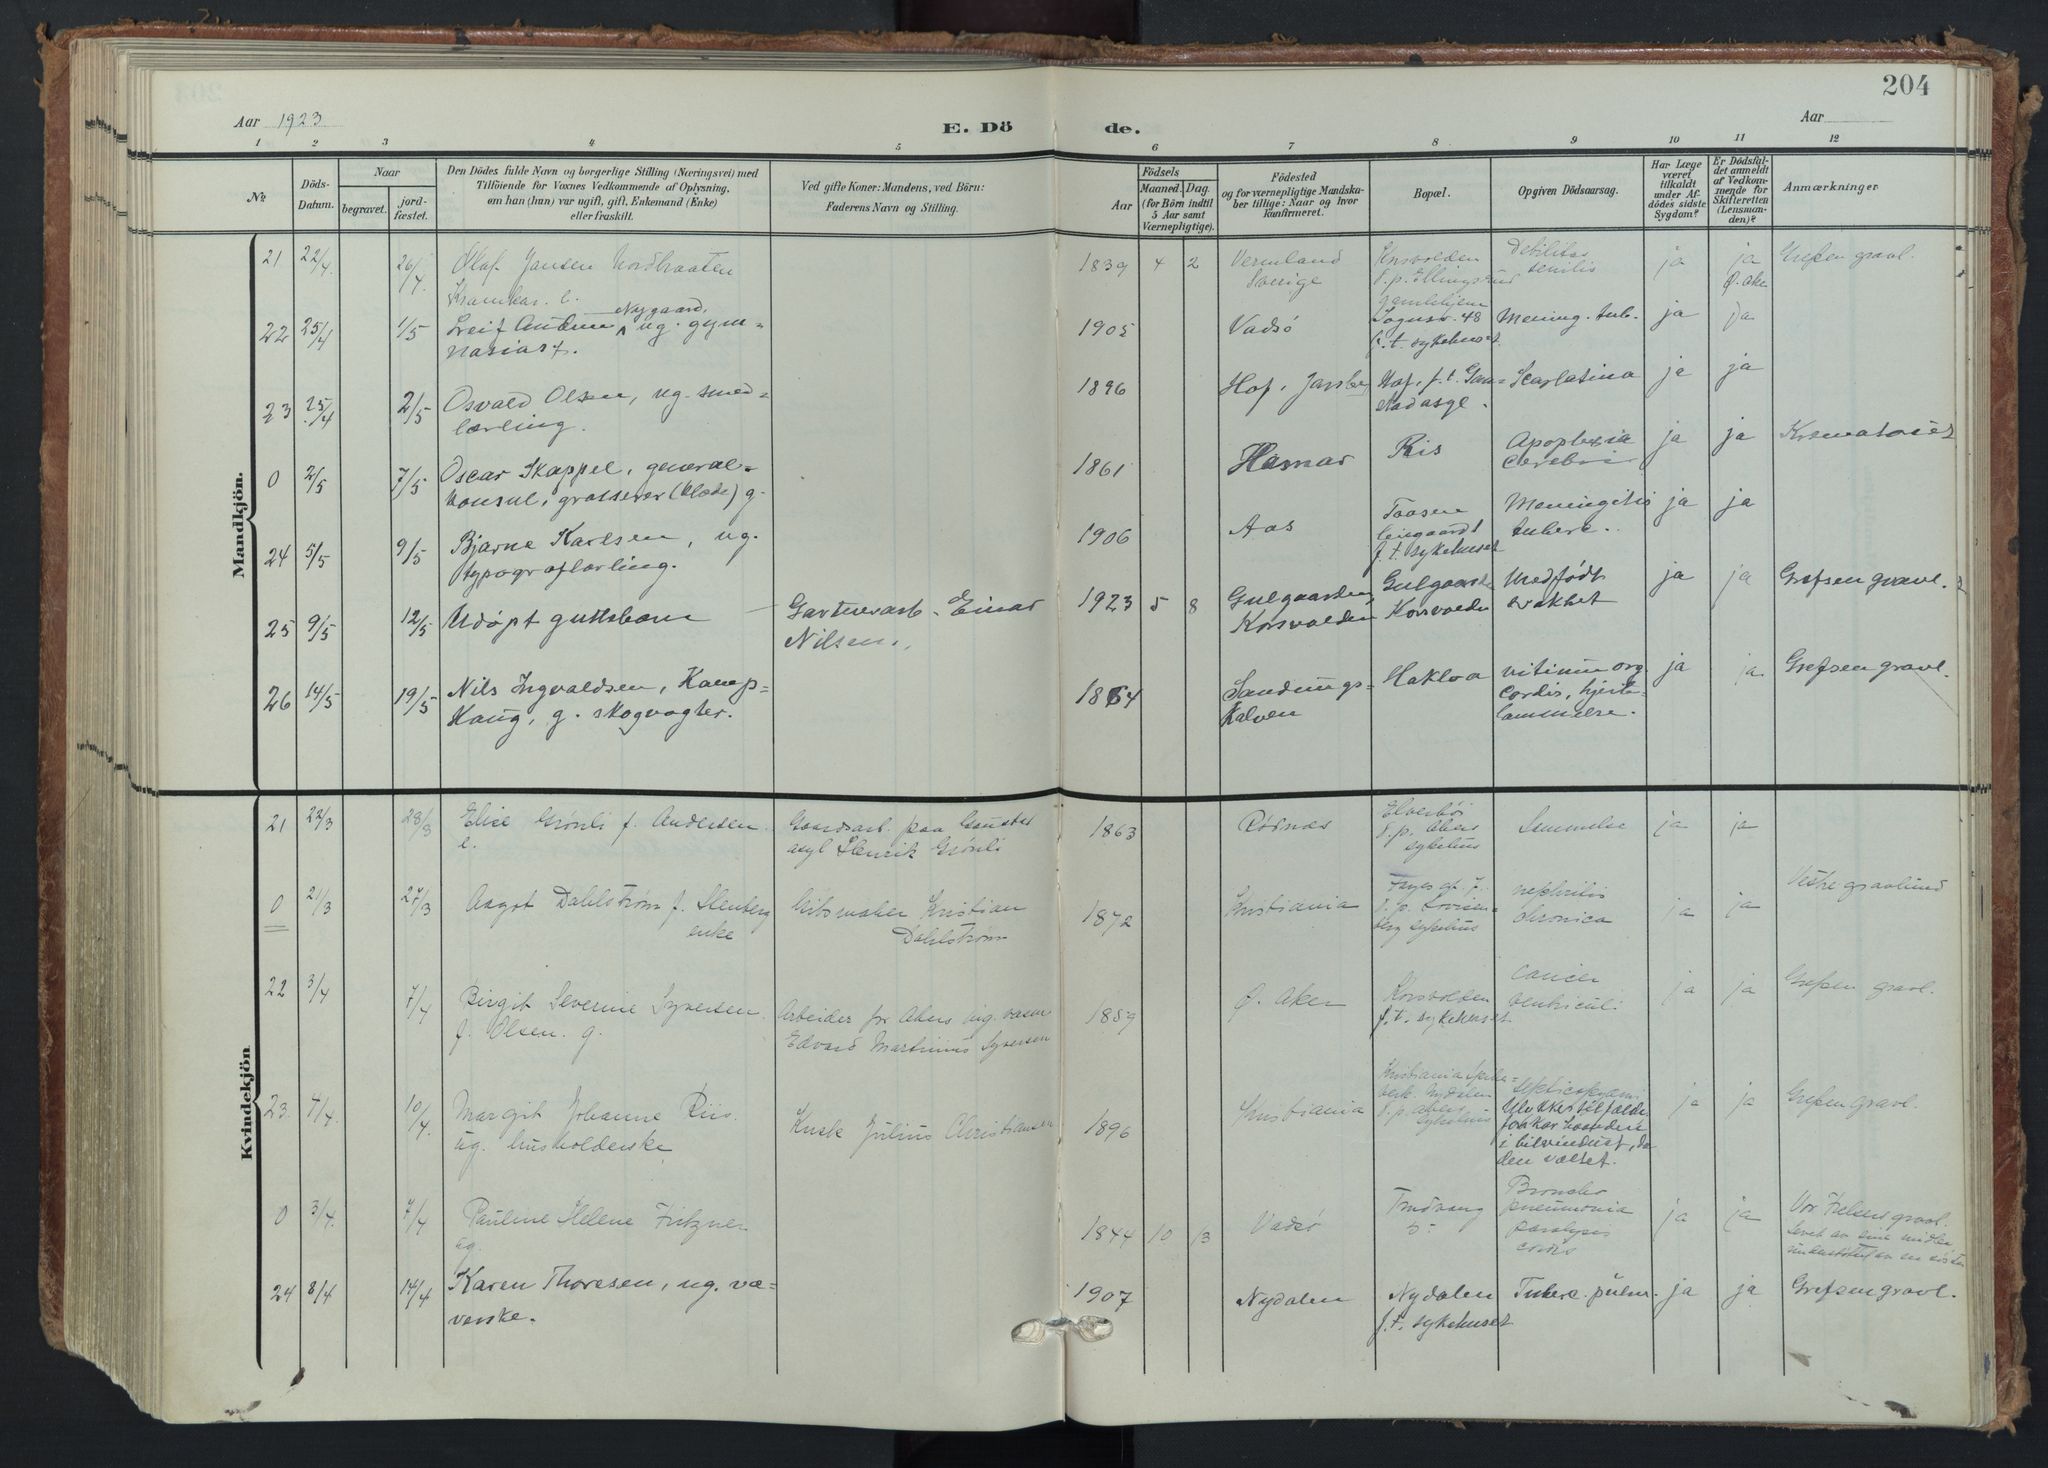 204
Aar 1923
E. Dö
de.
Aar
1 2 3 4 5 6 7 8 9 10 11 12
No.
Döds-
Datum.
Naar
begravet.
jord-
fæstet.
Den Dödes fulde Navn og borgerlige Stilling (Næringsvei) med
Tilföiende for Voxnes Vedkommende af Oplysning,
om han (hun) var ugift, gift, Enkemand (Enke)
eller fraskilt.
Ved gifte Koner: Mandens, ved Börn:
Faderens Navn og Stilling.
Födsels
Aar
Maaned. Dag.
(for Börn indtil
5 Aar samt
Værnepligtige).
Födested
og for værnepligtige Mandska-
ber tillige: Naar og hvor
konfirmeret.
Bopæl.
Opgiven Dödsaarsag.
Har Læge
været
tilkaldt
under Af-
dödes sidste
Sygdom?
Er Dödsfal-
det anmeldt
af Vedkom-
mende for
Skifteretten
(Lensman-
den)?
Anmærkninger
Mandkjön.
21 22/4 26/4 Olaf Jansen Nordbraaten
e.
1839 4 2 Vermland
Sverige
Korsvolden
Debilitas
senilis
ja ja
Ø. Aker
Grefsen gravl.
22 25/4 1/5 Leif Nygaard, ug. gym-
nasiast.
1905 Vadsø
Sognsv. 48
f. t. sykehuset
Mening. tub. ja ja
23 25/4 2/5 Osvald Olsen, ug. smed-
lærling.
1896 Hof, Jarlsberg Hof, f. t. Gau-
stadasyl.
Scarlatina ja ja
0 2/5 7/5 Oscar Skappel, general-
konsul, grosserer (klæde) g.
1861 Hamar Ris Apoplexia
cerebri
ja ja Krematoriet
24 5/5 9/5 Bjarne Karlsen, ug.
typograflærling.
1906 Aas Taasen
leirgaardt
f. t. sykehuset
Meningitis
tuberc.
ja ja
25 9/5 12/5 Udøpt guttebarn Gartnerarb. Einar
Nilsen.
1923 5 8 Gulgaarden,
Korsvolden
Gulgaarden
Korsvolden
Medfødt
svakhet
ja ja Grefsen gravl.
26 14/5 19/5 Nils Ingvaldsen, Kamp-
haug, g. skogvogter.
1864 Sandungs-
kalven
Hakloa vitium org.
cordis, hjerte-
lammelse.
ja ja Grefsen gravl.
Kvindekjön
21 22/3 28/3 Elise Grønli f. Andersen
e.
Gaardsarb. paa Gaustad
asyl Henrik Grønli
1863 Rødnæs
f. p. Akers
sykehus
Lammelse ja ja
0 21/3 27/3 Aagot Dahlstrøm f. Stenberg
enke
Gibsmaker Kristian
Dahlstrøm
1872 Kristiania
f. p. Lovisen-
berg sykehus
nephritis
chronica
ja ja Vestre gravlund
22 3/4 7/4 Birgit Severine Syversen
f. Olsen. g.
Arbeider for Akers
Edvard Martinius Syversen
1859 Ø. Aker Korsvolden
f. t. sykehuset
cancer
ventriculi
ja ja Grefsen gravl.
23 4/4 10/4 Margit Johanne Riis.
ug. husholderske
Kusk Julius Christiansen
1896 Kristiania
f. p. Akers
sykehus
Ulykkestilfælde
i bilvinduet, da
den væltet.
ja ja Grefsen gravl.
0 3/4 7/4 Pauline Helene Fritzner
ug.
1844 10 13 Vadsø Trudvang
v. 5
Broncho
pneumonia
paralysis
cordis
ja ja Vor Frelsers gravl.
Levet av sine midler
24 8/4 14/4 Karen Thoresen, ug. væ-
verske.
1907 Nydalen Nydalen
f. t. sykehuset
Tuberc. pulm. ja ja Grefsen gravl.